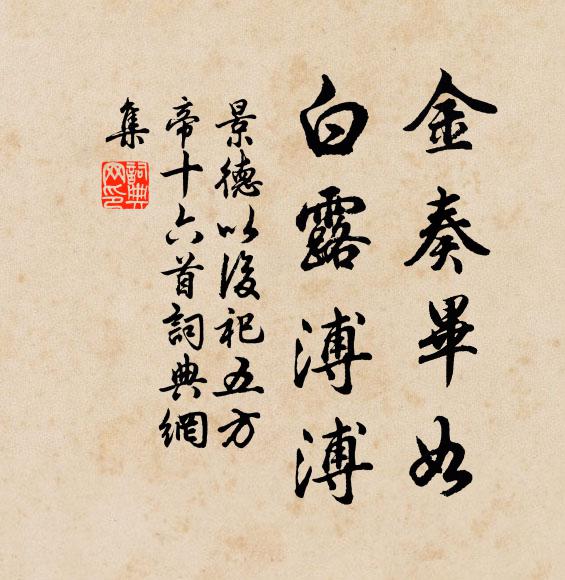 金奏畢如
白露溥溥
景德以後祀五方
帝十六首詞典網
集
詞典
网印